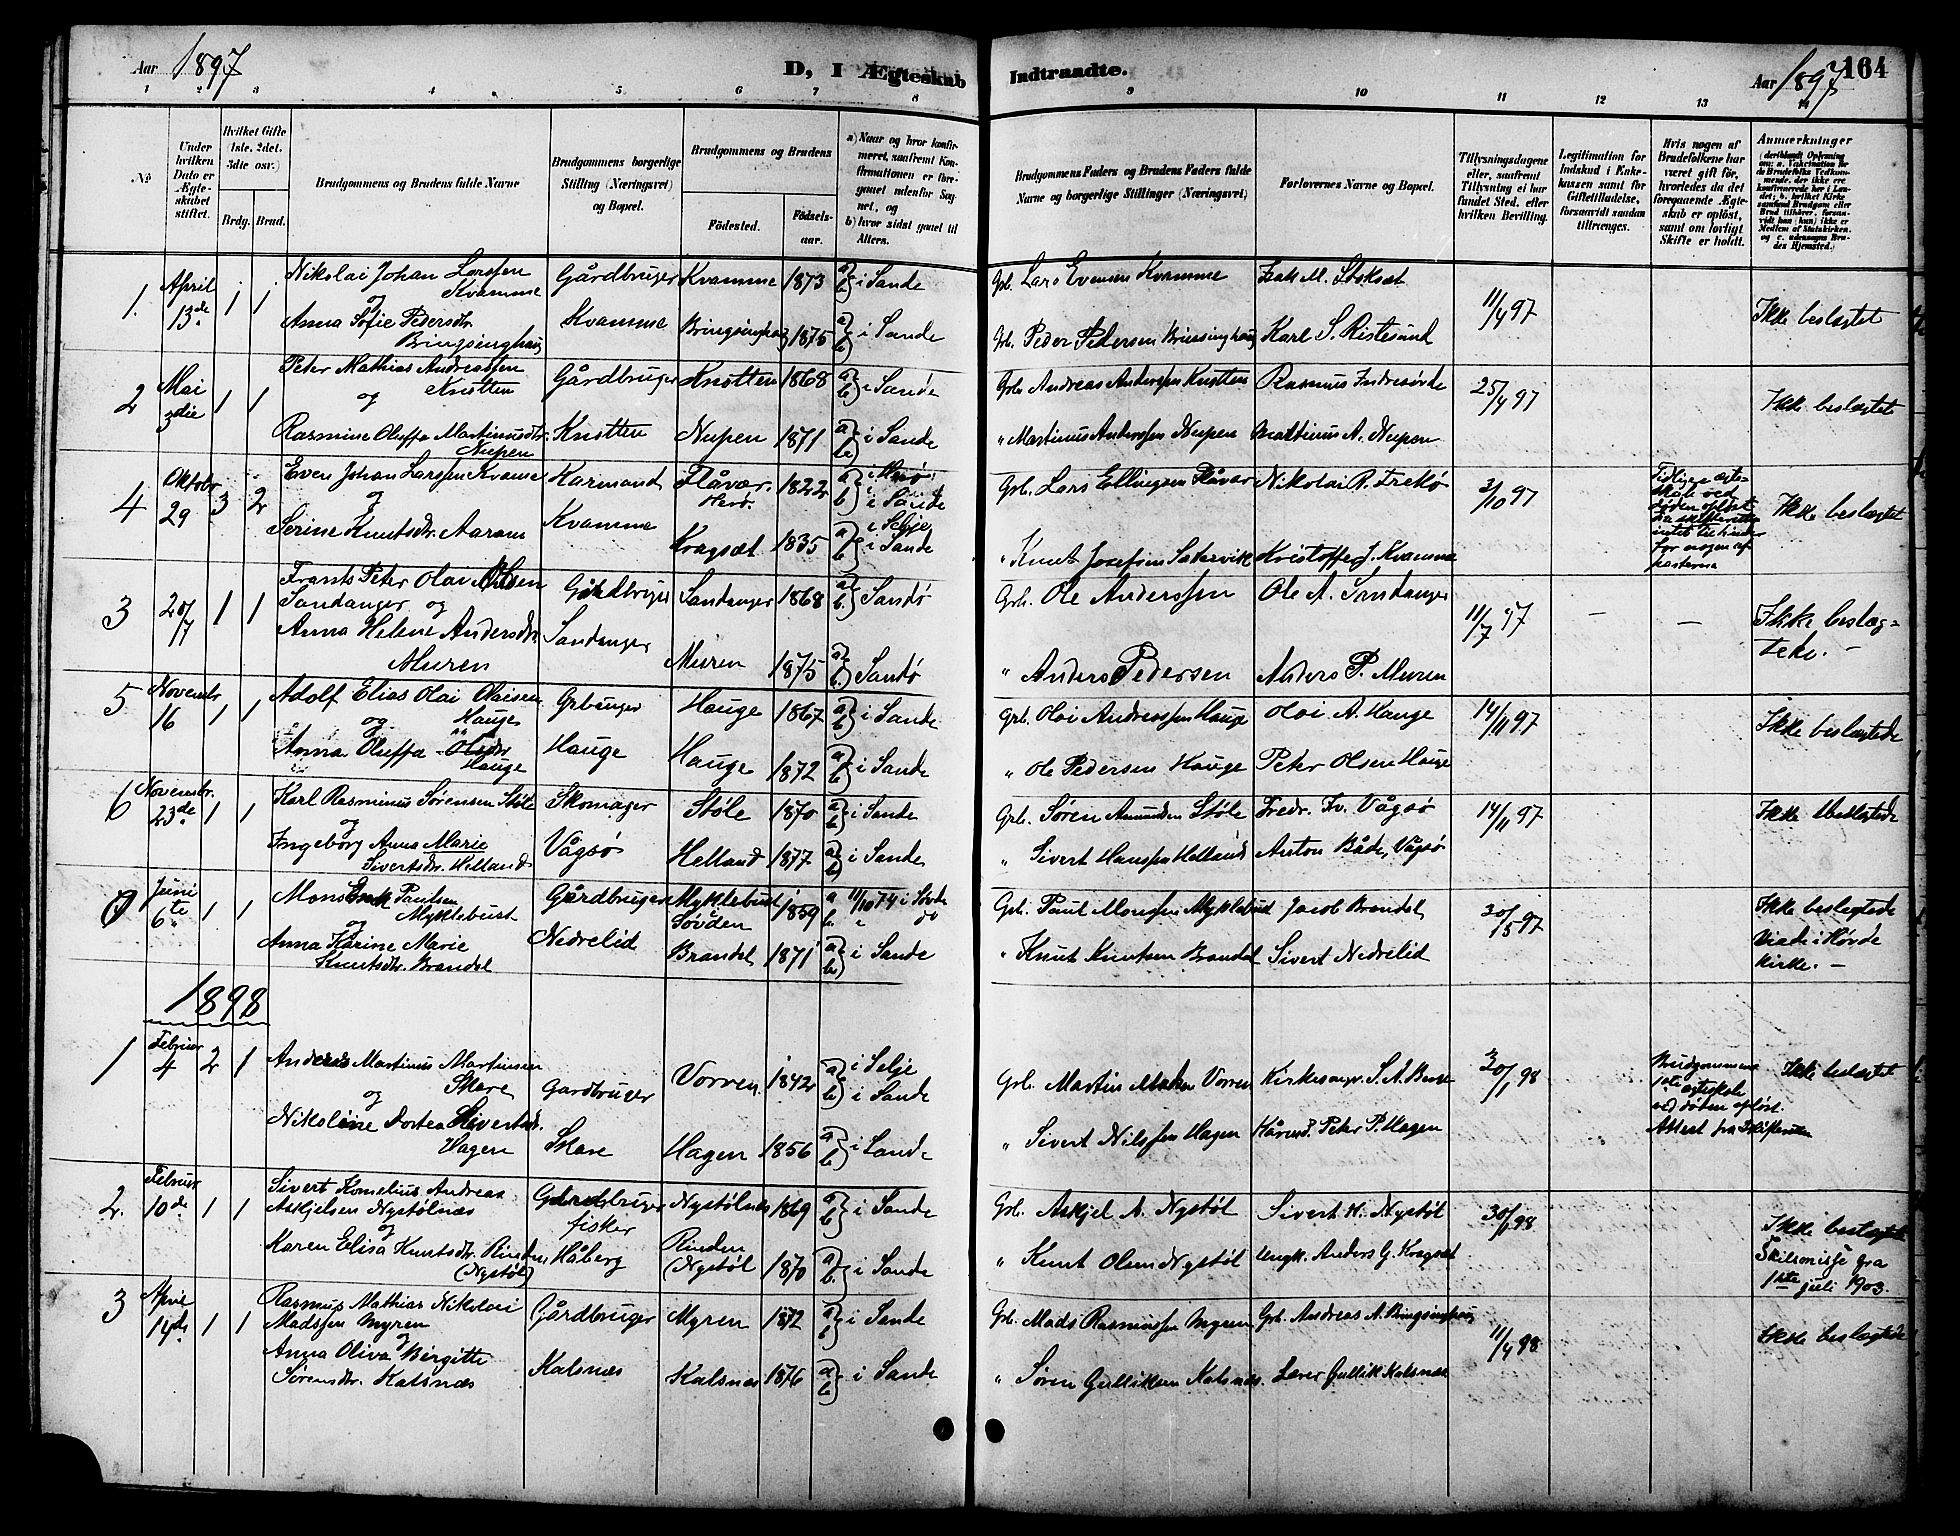 Aar 1897
D, I Ægteskab
Indtraadte.
Aar 1897
164
1 2 3 4 5 6 7 8 9 10 11 12 13 14
No
Under hvilken Dato er Ægteskabet stiftet.
Hvilket Gifte (1ste, 2det, 3dte osv.)
Brdg. Brud.
Brudgommens og Brudens fulde Navne
Brudgommens borgerlige Stilling (Næringsvei) og Bopæl.
Brudgommens og Brudens
Fødested.
Fødselsaar.
a) Naar og hvor konfirmeret, saafremt Konfirmationen er foregaaet udenfor Sognet, og
b) hvor sidst gaaet til Alters.
Brudgommens Faders og Brudens Faders fulde Navne og borgerlige Stillinger (Næringsvei)
Forlovernes Navne og Bopæl.
Tillysningsdagene eller, saafremt Tillysning ei har fundet Sted, efter hvilken Bevilling.
Legitimation for Indskud i Enkekassen samt for Giftetilladelse, forsaavidt saadan tiltrænges.
Hvis nogen af Brudefolkene har været gift før, hvorledes da det foregaaende Ægteskab er opløst, samt om lovligt Skifte er holdt.
Anmærkninger
1. April 13de 1 1 Nikolai Johan Larssen Kvamme Gårdbruger Kvamme 1873 a) b) i Sande Gb. Lars Evensen Kvamme Isak M. Stoksæt 11/4 97 Ikke beslægtet
og Anna Sofie Pedersdtr. Bringsinghaug Kvamme Bringsinghaug 1875 a) b) i Sande Gb. Peder Pedersen Bringsinghaug Karl S. Ristesund
2 Mai 3die 1 1 Peter Mathias Andreassen Knotten Gårdbruger Knotten 1868 a) b) i Sande Grb. Andreas Anderssen Knotten Rasmus Indresøvde 25/4 97 Ikke beslægtet
og Rasmine Oluffa Martinusdtr. Nupen Knotten Nupen 1871 a) b) i Sande " Martinus Anderssen Nupen Martinus A. Nupen
4 Oktobr 29 3 2 Even Johan Larssen Kvamme Kårmand Flåvær Herø. 1822 a) i Herø b) i Sande Grb. Lars Ellingsen Flåvær Nikolai R. Frekø 3/10 97 Ikke beslægtet
og Serine Knutsdtr. Aaram Kvamme Kragsæt 1835 a) i Selje b) i Sande " Knut Josefsen Sætervik Kristoffer J. Kvamme
3 20/7 1 1 Frants Peter Olai Olsen Sandanger og Gårdbruger Sandanger 1868 a) b) Sandø Grb. Ole Anderssen Ole A. Sandanger 11/7 97 – – Ikke beslægtede. –
Anna Helene Andersdtr. Muren Sandanger Muren 1875 a) b) Sandø " Anders Pedersen Anders P. Muren
5 Novembr 16 1 1 Adolf Elias Olai Olaisen Hauge Grbruger Hauge 1867 a) b) i Sande Grb. Olai Andreassen Hauge Olai A. Hauge 14/11 97 Ikke beslægtede
og Anna Oluffa Olsdtr. Hauge Hauge Hauge 1872 a) b) i Sande " Ole Pedersen Hauge Peter Olsen Hauge
6 Novembr. 23de 1 1 Karl Rasminus Sørensen Støle Skomager Støle 1870 a) b) i Sande Grb. Søren Amundsen Støle Fredr. Fr. Vågsø 14/11 97 Ikke beslægtede
og Ingeborg Anna Marie Sivertsdtr. Helland Vågsø Helland 1877 a) b) i Sande " Sivert Hanssen Helland Anton Både, Vågsø
Juni 6te 1 1 Mons Paulsen Myklebust Gårdbruger Myklebust Søvden 1859 a 11/10 74 i Søvde b. " do Grb. Paul Monssen Myklebust Jacob Brandal 30/5 97 Ikke beslægtede Viede i Søvde kirke. –
og Anna Karine Marie Knutsdtr. Brandal Nedrelid Brandal 1871 a) b) i Sande " Knut Knutsen Brandal Sivert Nedrelid
1898
1 Februar 4 2 1 Andreas Martinus Martinusen Skare Gardbruger Vorren 1842 a) i Selje b) i Sande Grb. Martin Vorren Kirkesang. S. A. 30/1 98 Brudgommens 1ste ægteskab ved døden opløst. Attest fra Skifteretten Ikke beslægtet
og Nikoline Dortea Sivertsdtr. Hagen Skare Hagen 1856 a) b) i Sande " Sivert Nilssen Hagen Kårmd. Peter P. Hagen
2. Februar 10de 1 1 Sivert Kornelius Andreas Askjelsen Nystølnæs Gårdbruger fisker Nystølnæs 1869 a) b) i Sande Grb. Askjel A. Nystøl Sivert H. Nystøl 30/1 98 Ikke beslægtet
og Karen Elisa Knutsdtr. Rinden (Nystøl) Håberg Rinden (Nystøl 1870 a) b) i Sande " Knut Olsen Nystøl Ungk. Anders G. Kragsæt Skilsmisse fra 1ste juli 1903.
3 April 14de 1 1 Rasmus Mathias Nikolai Madssen Myren Gårdbruger Myren 1872 a) b) i Sande Grb. Mads Rasmussen Myren Grb. Andreas A. Bringsinghaug 11/4 98 Ikke beslægtede
og Anna Oliva Birgitte Sørensdtr. Kalsnæs Kalsnæs Kalsnæs 1876 a) b) i Sande " Søren Gulliksen Kalsnæs. Lærer Gullik Kalsnæs